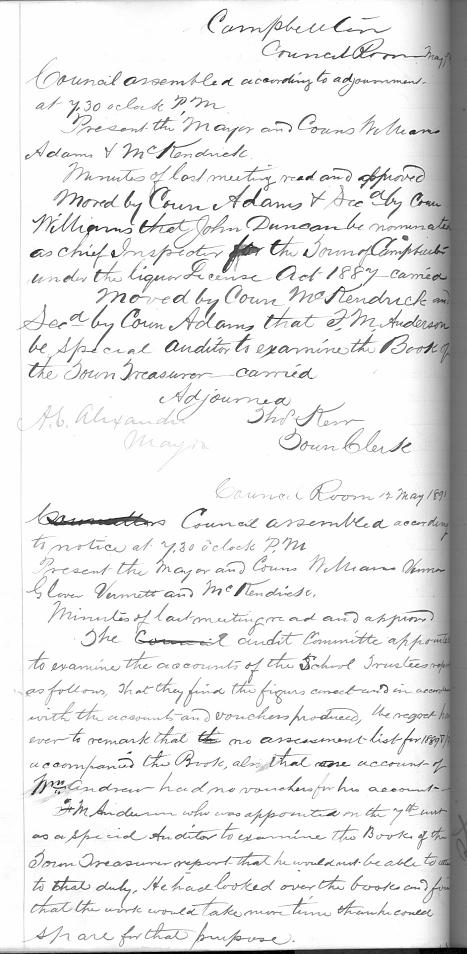 Campbellton
Council Room May
Council assembled according to adjournment
at 7,30 oclock P.M
Present the Mayor and Couns Williams
Adams & McKendrick.
Minutes of last meeting read and approved
Moved by Coun Adams & Secd by Coun
Williams that John Duncan be nominated
as chief Inspector for the Town of Campbellton
under the liquor License Act 1887 carried
Moved by Coun McKendrick and
Secd by Coun Adams that F. M. Anderson
be special auditor to examine the Book of
the Town Treasurer carried
Adjourned
A. E. Alexander Thos Kerr
Mayor Town Clerk
Council Room 12 May 189
Council assembled according
to notice at 7,30 oclock P.M
Present the Mayor and Couns Williams
Glover Vermett and McKendrick.
Minutes of last meeting read and approved
The Council audit Committee appointed
to examine the accounts of the School Trustees report
as follows, That they find the figures correct and in accordance
with the accounts and vouchers produced, the regret how
ever to remark that the no assessment list for 1889
accompanied the Book, also that one account of
Wm Andrew had no vouchers for his account
F M Anderson who was appointed on the 7th inst
as a special Auditor to examine the Books of the
Town Treasurer report that he would not be able to
to that duty, He had looked over the books and found
that the work would take more time than he could
spare for that purpose.